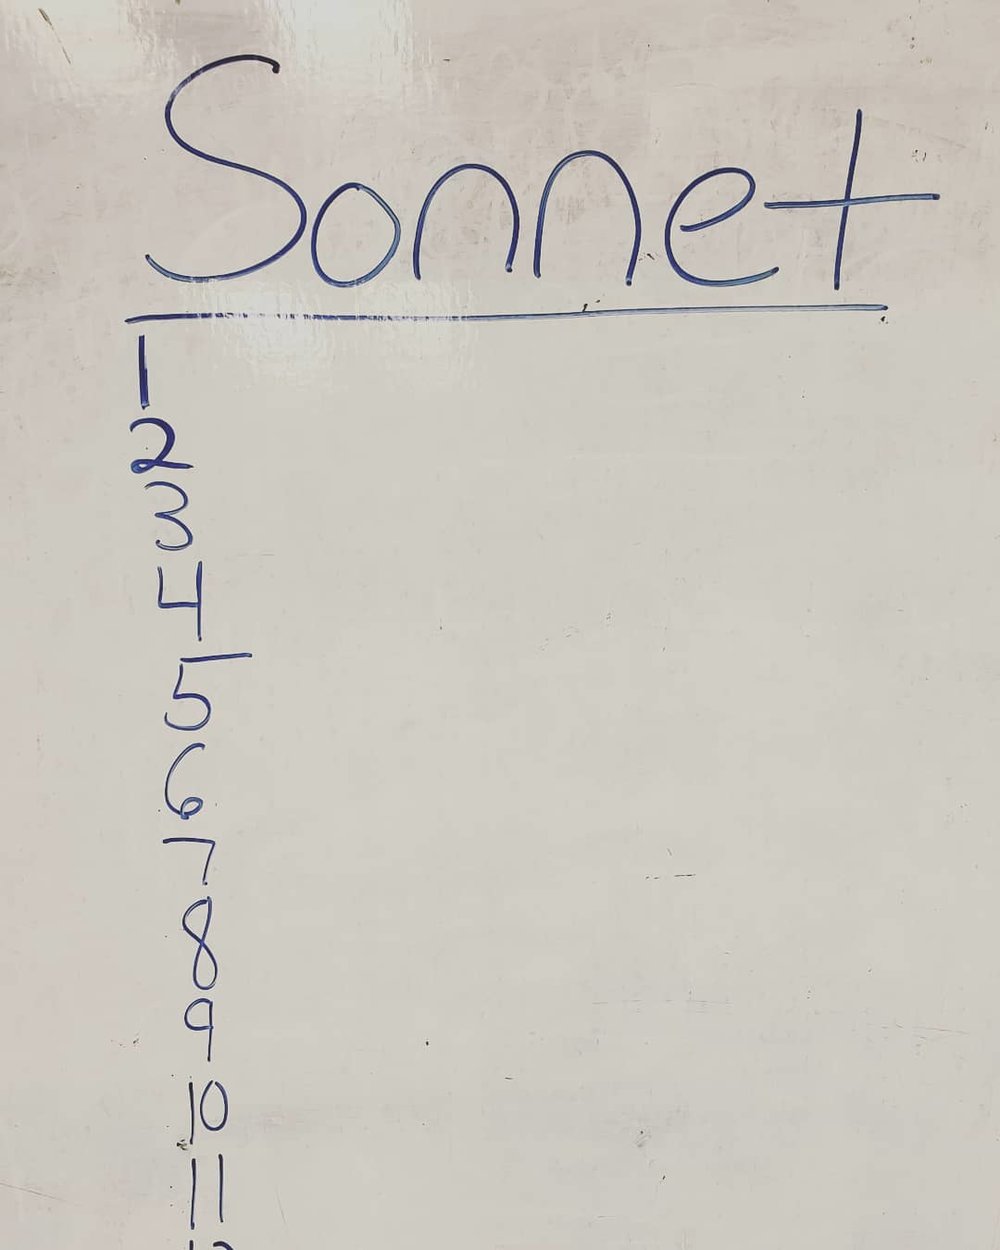 Sonnet
1
2
3
4
5
6
7
8
9
10
11